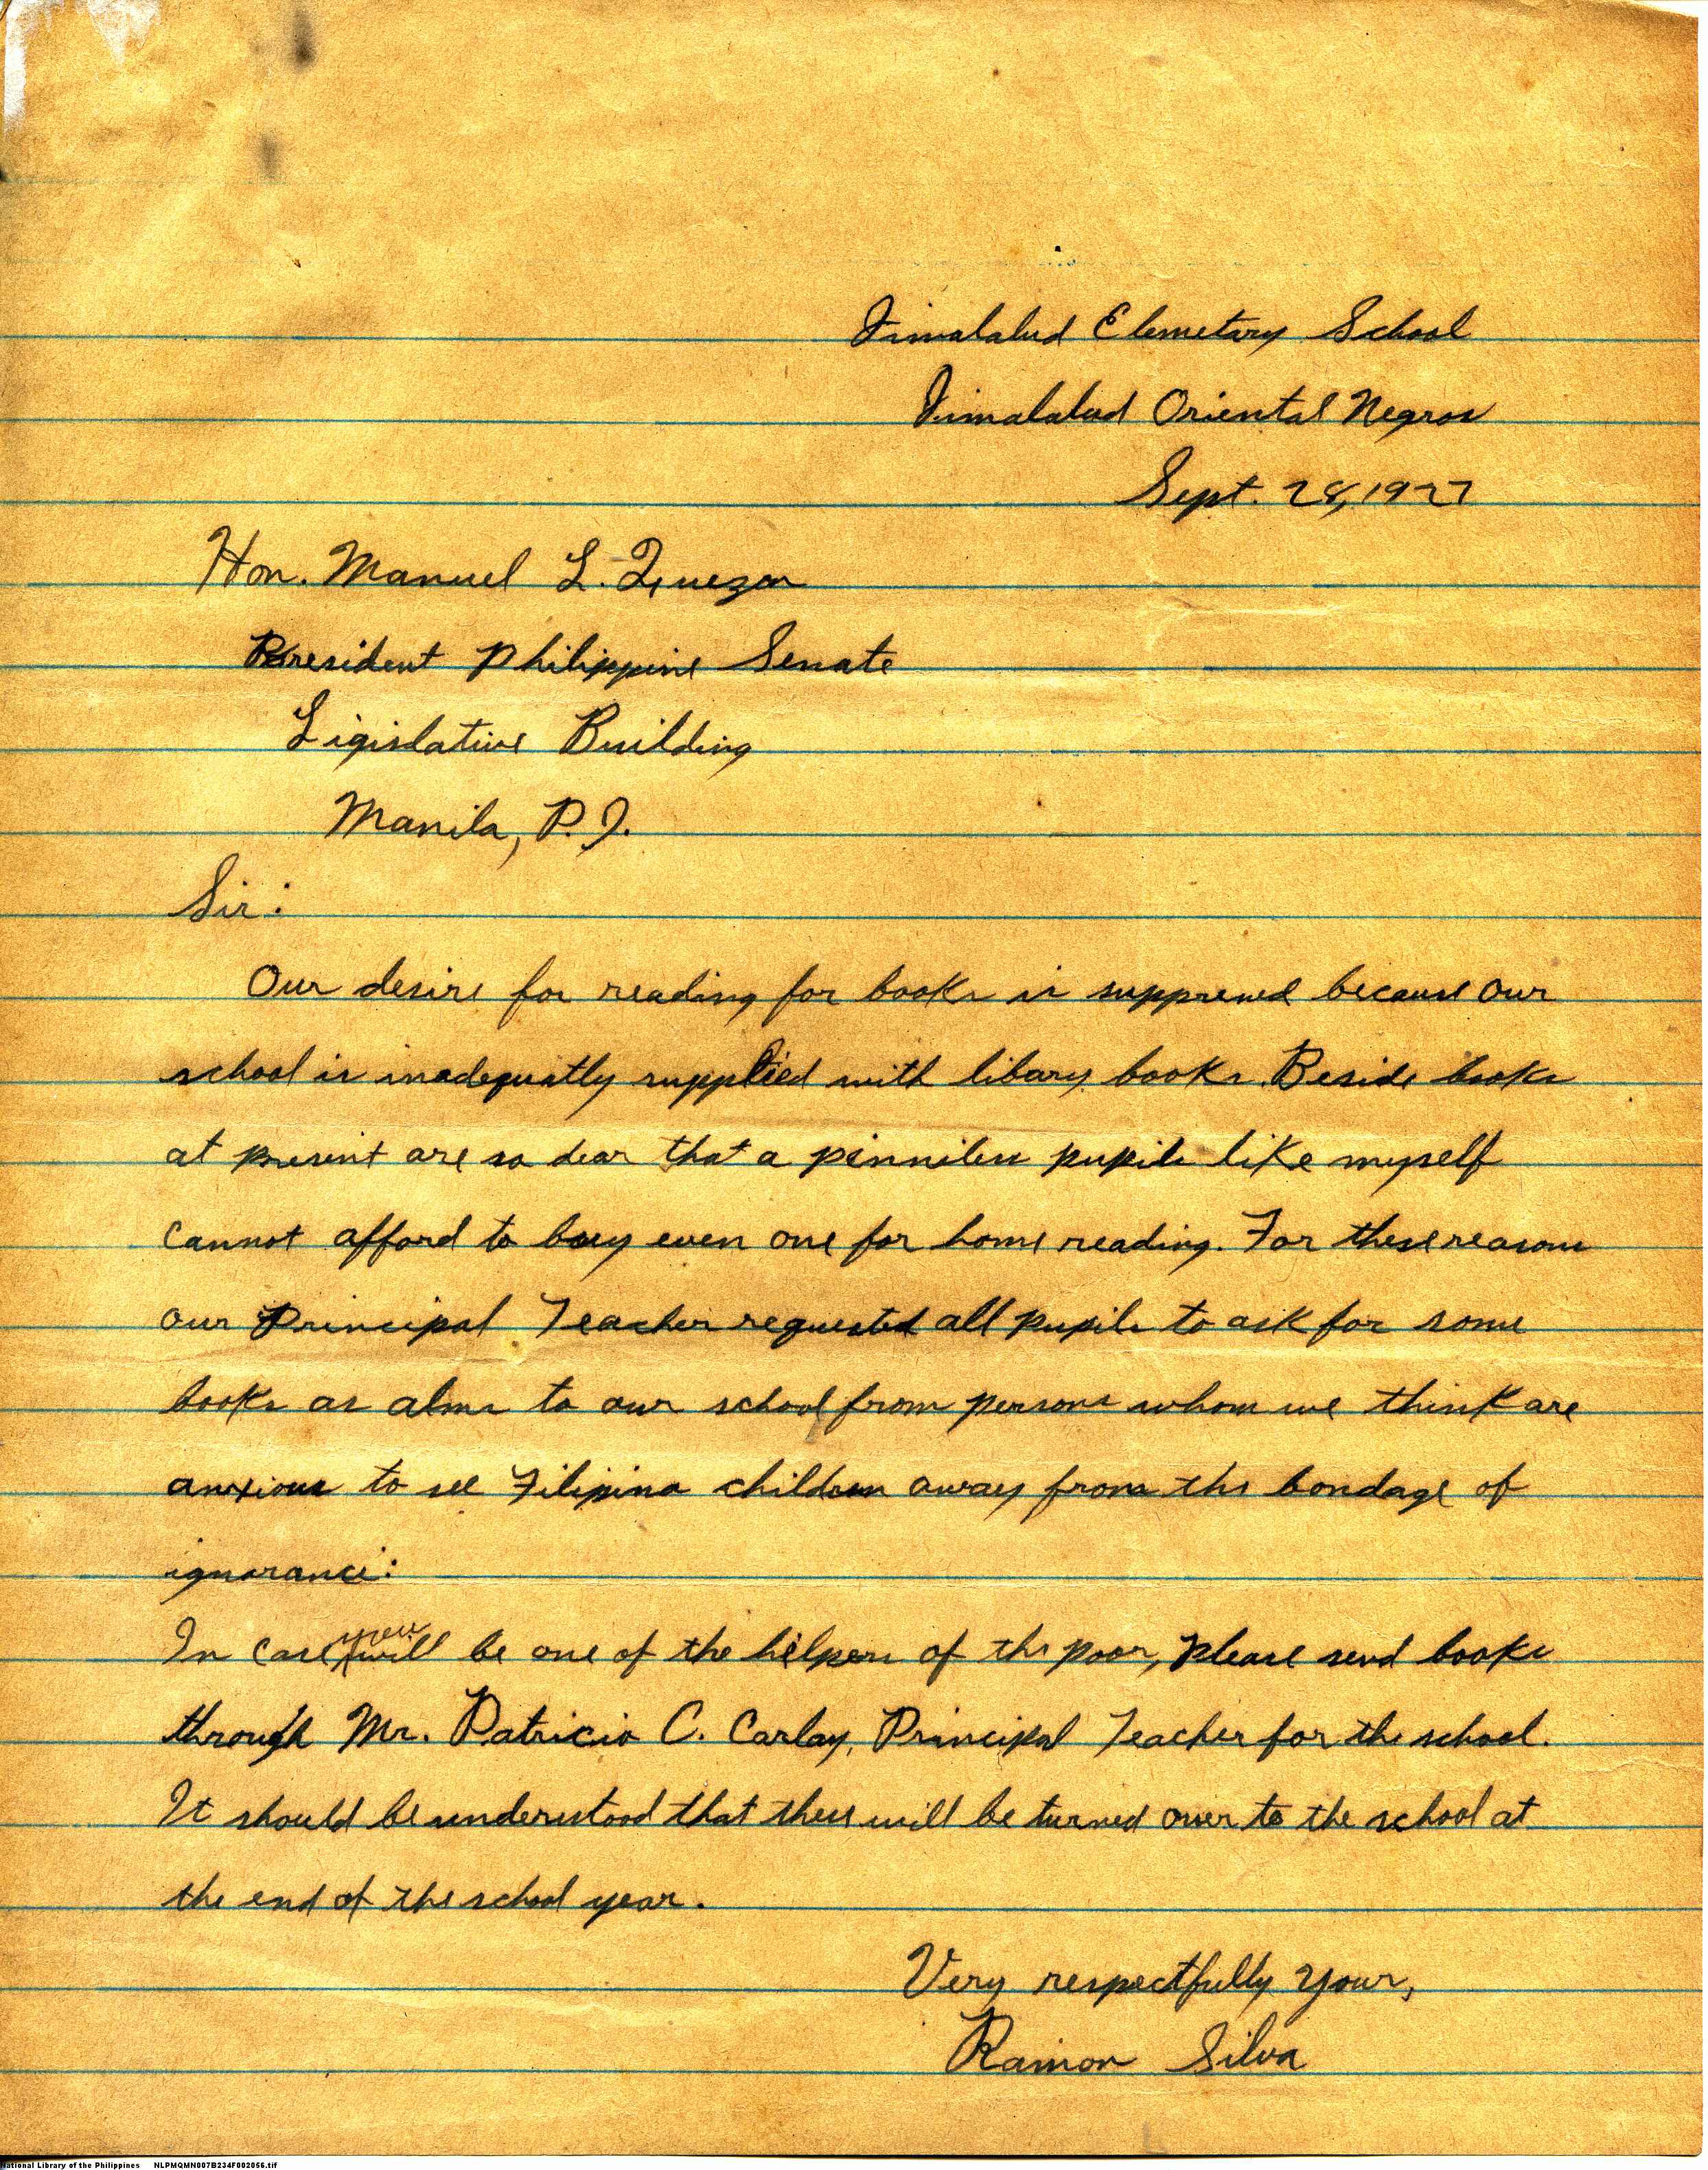 Jimalalud Elemetary School
Jimalalud Oriental Negros
Sept. 28, 1927
Hon. Manuel L. Quezon
President Philippine Senate
Legislative Building
Manila, P.I.
Sir:
Our desire for reading for books is suppressed because our
school is inadequatly supplied with libary books. Beside books
at present are so dear that a penniless pupils like myself
cannot afford to buy even one for home reading. For these reasons
our Principal Teacher requested all pupils to ask for some
books as alms to our school from persons whom we think are
anxious to see Filipino children away from the bondage of
ignorance:
In case you will be one of the helpers of the poor, please send books
through Mr. Patricio C. Carlay, Principal Teacher for the school.
It should be understood that these will be turned over to the school at
the end of the school year.
Very respectfully your,
Ramon Silva
National Library of the Philippines NLPMQMN007B234F002056.tif